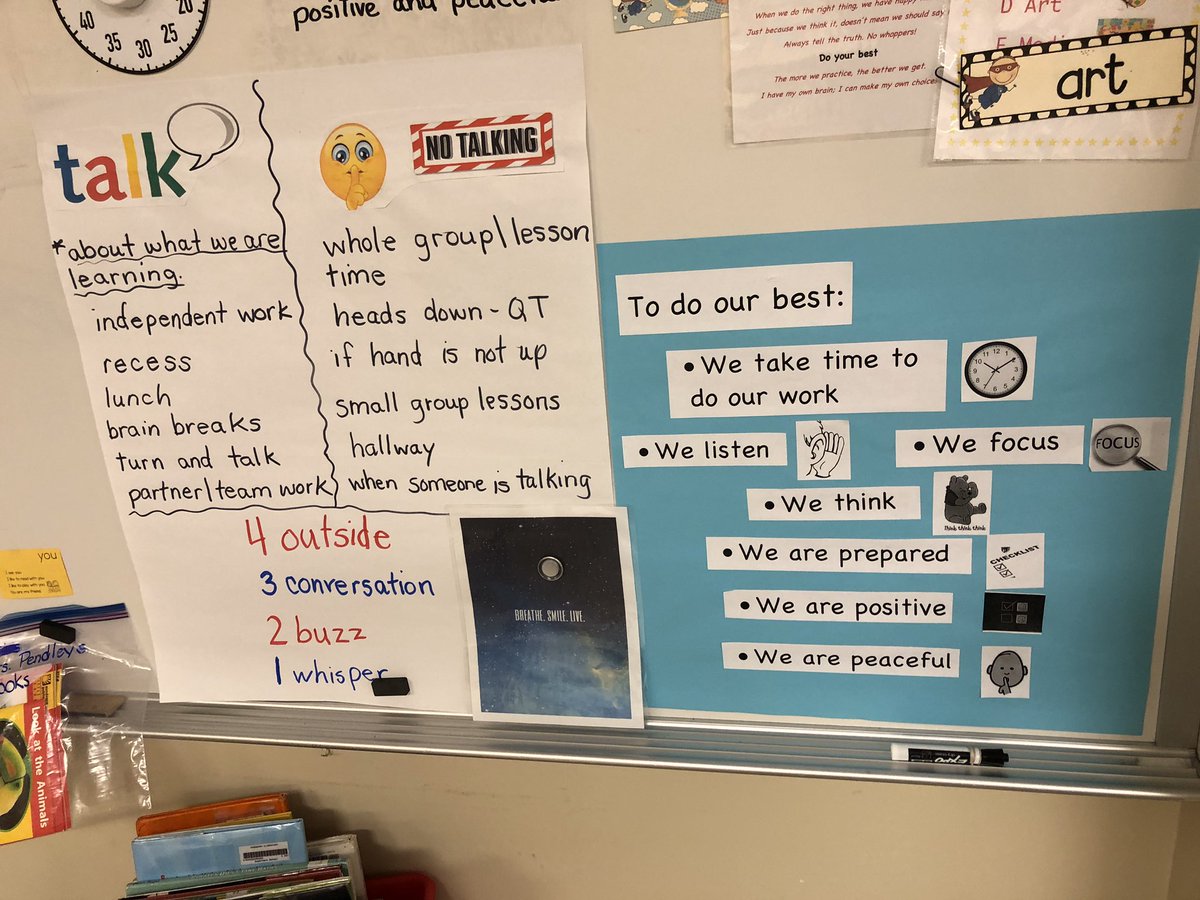 40
35
30
25
positive and peaceful
When we do the right thing, we have happy
Just because we think it, doesn't mean we should say
Always tell the truth. No whoppers!
Do your best
The more we practice, the better we get.
I have my own brain; I can make my own choice
D Art
art
talk
NO TALKING
*about what we are
learning.
independent work
recess
lunch
brain breaks
turn and talk
partner/team work
whole group\lesson
time
heads down - QT
if hand is not up
small group lessons
hallway
when someone is talking
4 outside
3 conversation
2 buzz
1 whisper
BREATHE. SMILE. LIVE.
To do our best:
• We take time to
do our work
• We listen
• We focus
FOCUS
• We think
think think think
• We are prepared
CHECKLIST
• We are positive
• We are peaceful
you
I see you
I like to read with you
I like to play with you
You are my friend
Pendley's
Look at the Animals
EXPO